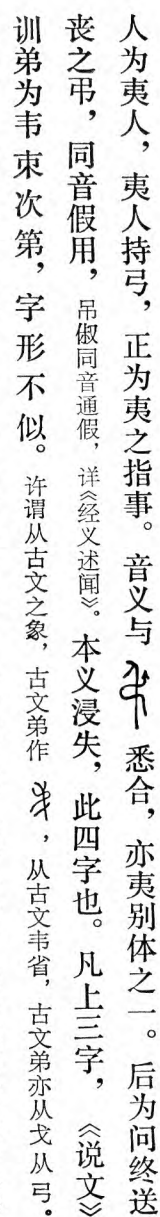 人为夷人，夷人持弓，正为夷之指事。音义与悉合，亦夷别体之一。后为问终送
丧之弔，同音假用，吊俶同音通假，详《经义述闻》。本义浸失，此四字也。凡上三字，《说文》
训弟为韦束次第，字形不似。许谓从古文之象，古文弟作，从古文韦省，古文弟亦从戈从弓。